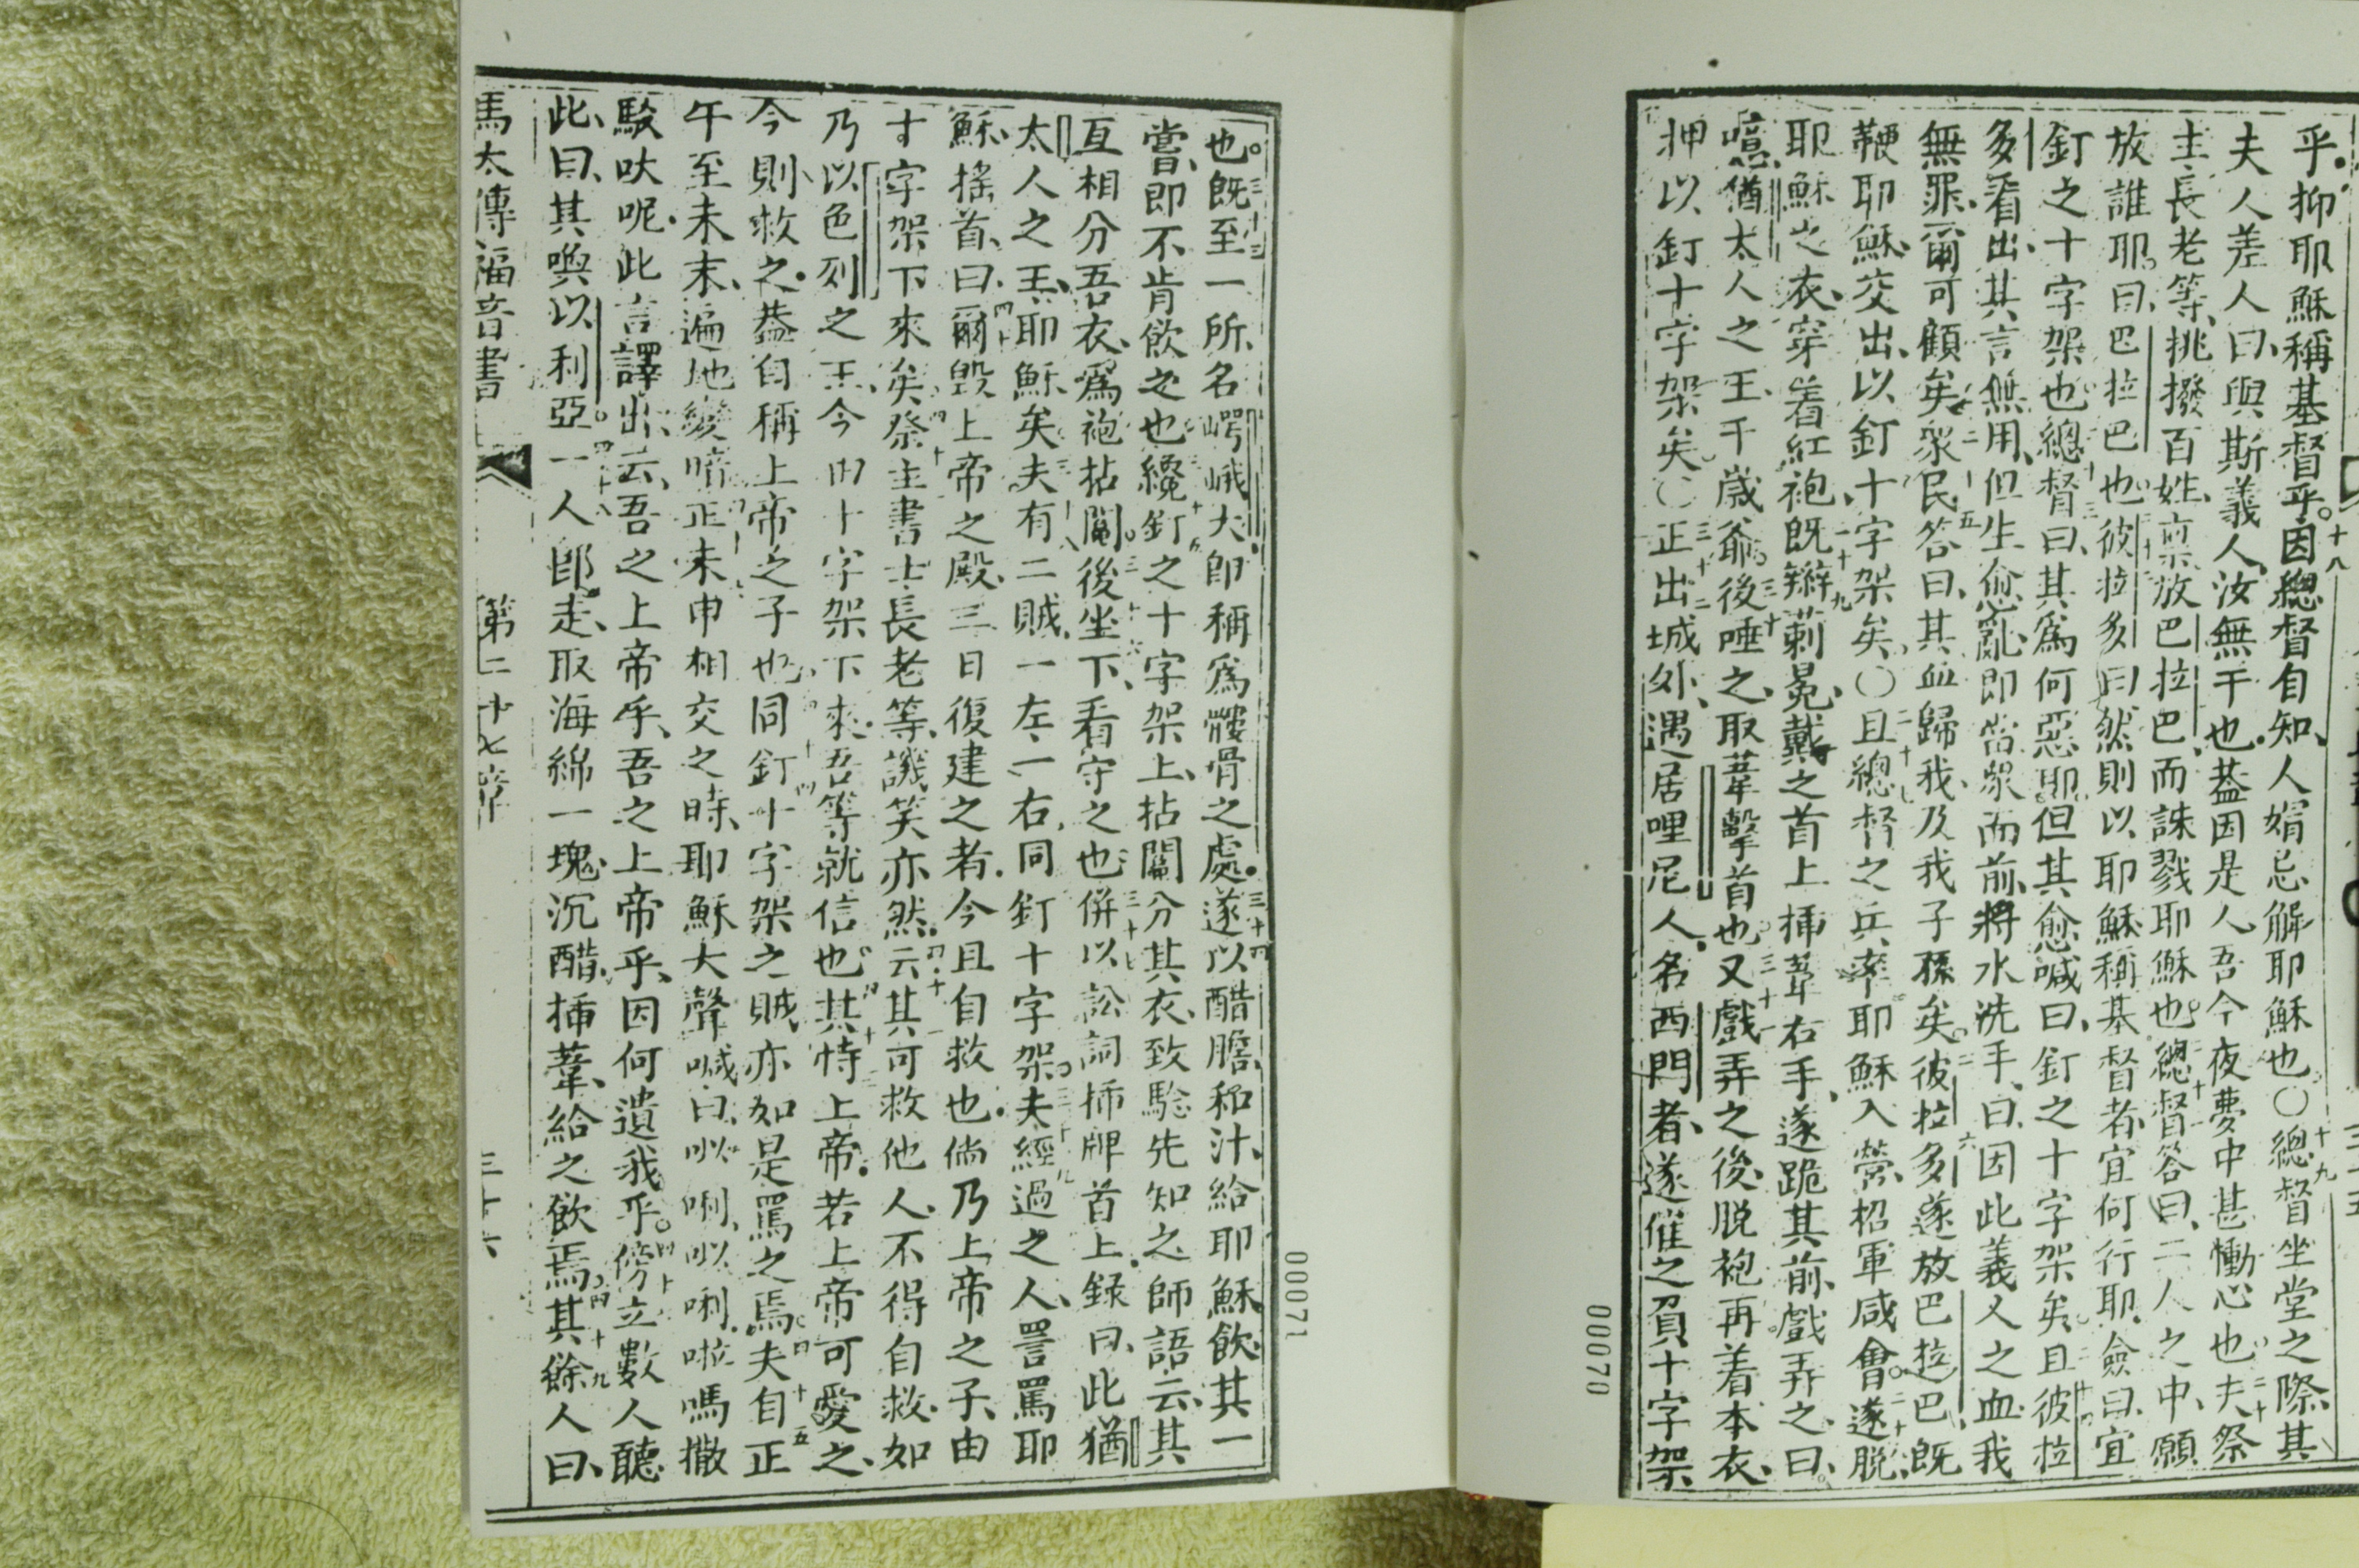 乎抑耶穌稱基督乎因總督自知人媢忌解耶穌也〇總督坐堂之際其
夫人差人曰與斯義人汝無干也蓋因是人吾今夜夢中甚慟心也夫祭
主長老等挑撥百姓稟放巴拉巴而誅戮耶穌也總督答曰二人之中願
放誰耶曰巴拉巴也彼拉多曰然則以耶穌稱基督者宜何行耶僉曰宜
釘之十字架也總督曰其爲何惡耶但其愈喊曰釘之十字架矣且彼拉
多看出其言無用但生愈亂即當眾而前將水洗手曰因此義人之血我
無罪爾可顧矣眾民答曰其血歸我及我子孫矣彼拉多遂放巴拉巴既
鞭耶穌交出以釘十字架矣〇且總督之兵率耶穌入營招軍咸會遂脱
耶穌之衣穿着紅袍既辮蓟冕戴之首上揷葦右手遂跪其前戲弄之曰
噫猶太人之王千歲爺後唾之取葦擊首也又戲弄之後脱袍再着本衣
押以釘十字架矣〇正出城外遇居哩尼人名西門者遂催之負十字架
00070
也既至一所名崿峨大即稱爲髏骨之處遂以醋膽和汁給耶穌飲其一
嘗即不肯飲之也纔釘之十字架上拈鬮分其衣致騐先知之師語云其
互相分吾衣爲袍拈鬮後坐下看守之也併以訟詞揷牌首上録曰此猶
太人之王耶穌矣夫有二賊一左一右同釘十字架夫經過之人詈罵耶
穌搖首曰爾毀上帝之殿三日復建之者今且自救也倘乃上帝之子由
十字架下來矣祭主書士長老等譏笑亦然云其可救他人不得自救如
乃以色列之王今由十字架下來吾等就信也其恃上帝若上帝可愛之
今則救之蓋自稱上帝之子也同釘十字架之賊亦如是罵之焉夫自正
午至未末遍地變暗正未申相交之時耶穌大聲喊曰㕥唎㕥唎啦嗎撒
駿呔呢此言譯出云吾之上帝乎吾之上帝乎因何遺我乎傍立數人聽
此曰其喚以利亞一人即走取海綿一塊沉醋揷葦給之飲焉其餘人曰
馬太傳福音書 第二十七章 三十六
00071